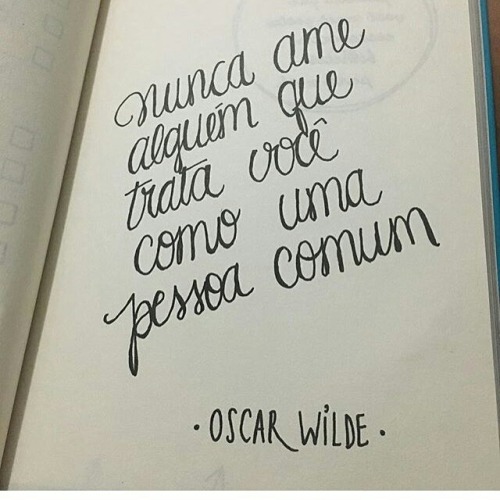 nunca ame
alguém que
trata você
como uma
pessoa comum
· OSCAR WILDE ·